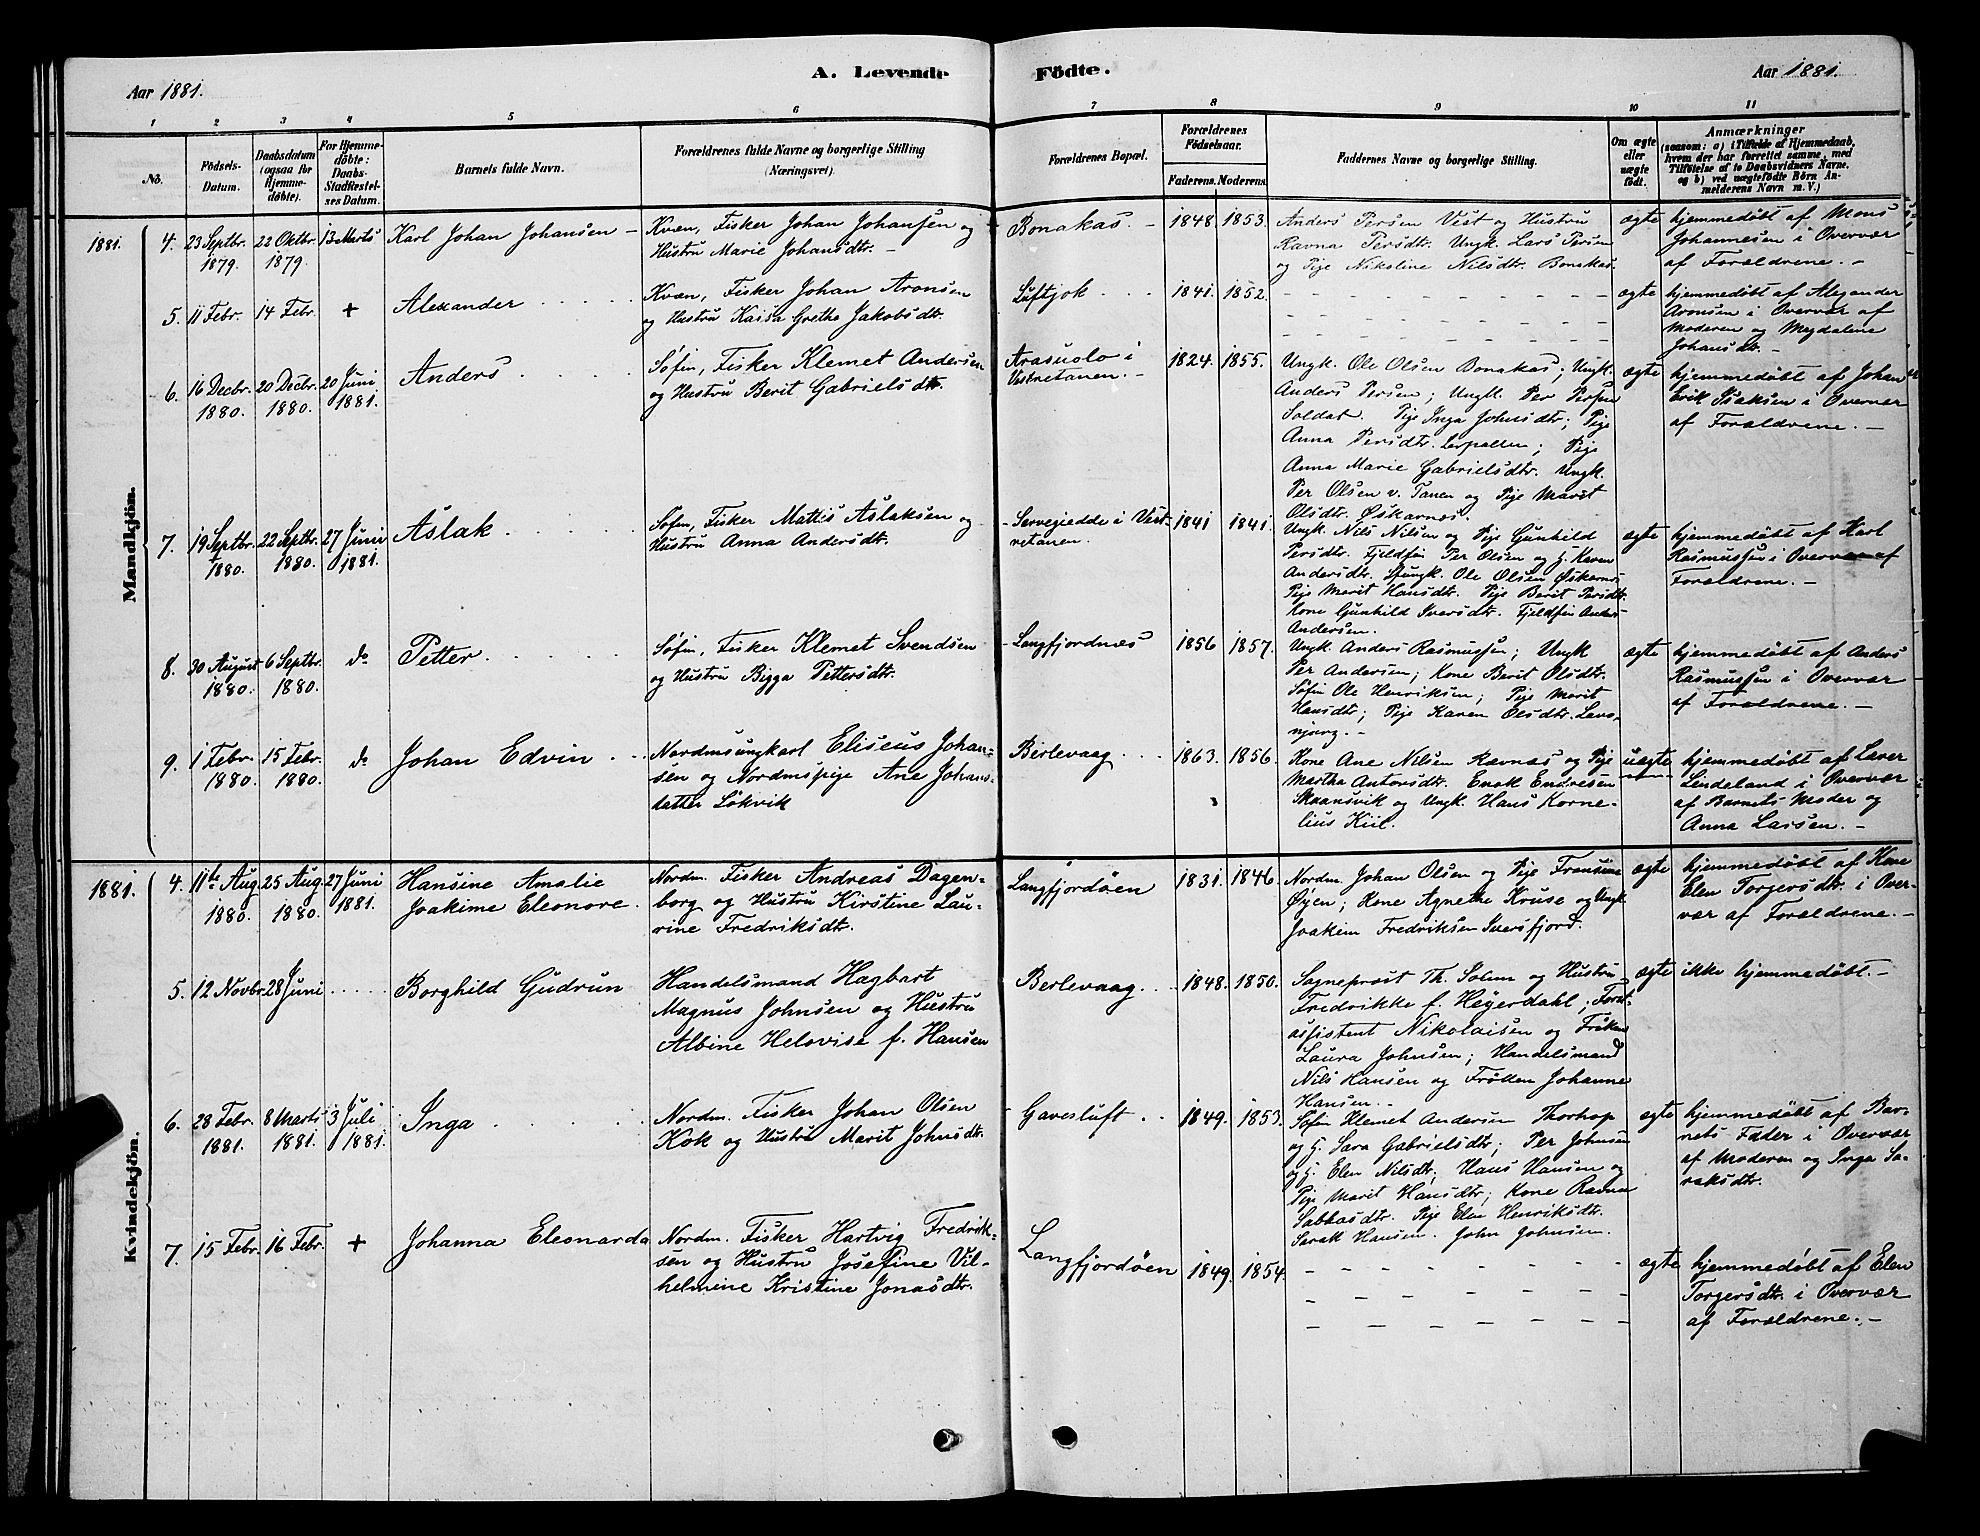 A. Levende Födte.
Aar 1881. Aar 1881.
1 2 3 4 5 6 7 8 9 10 11
No. Födsels-Datum. Daabsdatum (ogsaa for Hjemmedöbte). For Hjemmedöbte: Daabs-Stadfæstelses Datum. Barnets fulde Navn. Forældrenes fulde Navne og borgerlige Stilling (Næringsvei). Forældrenes Bopæl. Forældrenes Födselsaar. Faderens. Moderens. Faddernes Navne og borgerlige Stilling. Om ægte eller uægte födt. Anmærkninger
(saasom: a) i Tilfælde af Hjemmedaab,
hvem der har forrettet samme, med
Tilföielse af to Daabsvidners Navne.
og b) ved uægtefödte Börn An-
melderens Navn m. V.)
Mandkjön.
1881. 4. 23 Septbr. 1879. 22 Oktbr. 1879. 13 Marts
Karl Johan Johansen
Kvæn, Fisker Johan Johansen og
Hustru Marie Johansdtr.
Bonakas. 1848. 1853.
Anders Persen Vest og Hustru
Ravna Persdtr. Ungk. Lars Persen
og Pige Nikoline Nilsdtr. Bonakas.
ægte
hjemmedøbt af Mons
Johannesen i Overvær
af Forældrene. -
5. 11 Febr. 14 Febr. +
Alexander
Kvæn, Fisker Johan Aronsen
og Hustru Kaisa Grethe Jakobsdtr.
Luftjok 1841. 1852.
ægte
hjemmedøbt af Alexander
Aronsen i Overvær af
Moderen og Magdalene
Johansdtr. -
6. 16 Decbr. 1880. 20 Decbr. 1880. 20 Juni 1881.
Anders
Søfin, Fisker Klemet Andersen
og Hustru Berit Gabrielsdtr.
Arasuolo i
Vestretanen. - 1824. 1855.
Ungk. Ole Olsen Bonakas; Ungk.
Anders Persen; Ungk. Per Persen
Soldat. Pige Inga Johnsdtr; Pige
Anna Persdtr. ; Pige
Anna Marie Gabrielsdtr. Ungk.
Per Olsen v. Tanen og Pige Marit
Olsdtr. Øskarnes.
ægte
hjemmedøbt af Johan
Erik Isaksen i Overvær
af Forældrene. -
7. 19 Septbr. 1880. 22 Septbr. 1880. 27 Juni 1881.
Aslak
Søfin, Fisker Mattis Aslaksen og
Hustru Anna Andersdtr.
i Vest-
retanen. 1841 1841.
Ungk. Nils Nilsen og Pige Gunhild
Persdtr. Fjeldfin Per Olsen og H. Karen
Andersdtr. Ungk. Ole Olsen Øskarnes
Pige Marit Hansdtr. Pige Berit Persdtr.
Kone Gunhild Iversdtr. Fjeldfin Anders
Andersen.
ægte
hjemmedøbt af Karl
Rasmussen i Overvær af
Forældrene. -
8. 30 August 1880. 6 Septbr. 1880. do
Petter
Søfin, Fisker Klemet Svendsen
og Hustru Bigga Pettersdtr.
Langfjordnæs 1856 1857.
Ungk. Anders Rasmussen; Ungk
Per Andersen; Kone Berit Olsdtr.
Søfin Ole Henriksen; Pige Marit
Hansdtr; Pige Karen Olsdtr.
ægte
hjemmedøbt af Anders
Rasmussen i Overvær
af Forældrene. -
9. 1 Febr. 1880. 15 Febr. 1880. do
Johan Edvin
Nordmsungkarl Eliseus Johan-
sen og Nordmspige Ane Johans-
datter Løkvik
Berlevaag 1863. 1856.
Kone Ane Nilsen Ravnæs og Pige
Martha Antonsdtr. Enok Endresen
Skaansvik og Ungk. Hans Korne-
lius Kiil.
uægte
hjemmedøbt af Laver
Lindeland i Overvær
af Barnets Moder og
Anna Larsen. -
Kvindekjön.
1881. 4. 11te Aug. 1880. 25 Aug. 1880. 27 Juni 1881.
Hansine Amalie
Joakime Eleonore.
Nordm. Fisker Andreas Dagen-
borg og Hustru Kirstine Lau-
rine Fredriksdtr.
Langfjordøen 1831. 1846.
Nordm. Johan Olsen og Pige
Øyen; Kone Agnethe Kruse og Ungk
Joakim Fredriksen Iversfjord.
ægte
hjemmedøbt af Kone
Elen Torgersdtr. i Over-
vær af Forældrene. -
5. 12 Novbr. 28 Juni
Borghild Gudrun
Handelsmand Hagbart
Magnus Johnsen og Hustru
Albine Helovise f. Hansen
Berlevaag. 1848. 1850.
Sogneprest Th. Solem og Hustru
Fredrikke f. Heyerdahl; Forst-
assistent Nikolaisen og Frøken
Laura Johnsen; Handelsmand
Nils Hansen og Frøken Johanne
Hansen. -
ægte
ikke hjemmedøbt. -
6. 28 Febr. 1881. 8 Marts 1881. 3 Juli 1881.
Inga
Nordm. Fisker Johan Olsen
Kok og Hustru Marit Johnsdtr.
Gavesluft 1849. 1853.
Søfin Klemet Andersen Thorhop
og H. Sara Gabrielsdtr; Per Johnsen
og H. Elen Nilsdtr; Hans Hansen og
Pige Marit Hansdtr; Kone Ravna
Sabbasdtr. Pige Elen Henriksdtr.
Sarak Hansen. John Johnsen.
ægte
hjemmedøbt af Bar-
nets Fader i Overvær
af Moderen og Inga Sa-
raksdtr.
7. 15 Febr. 16 Febr. +
Johanna Eleonarda
Nordm. Fisker Hartvig Fredrik-
sen og Hustru Josefine Vil-
helmine Kristine Jonasdtr.
Langfjordøen 1849. 1854.
ægte
hjemmedøbt af Elen
Torgersdtr. i Overvær
af Forældrene. -